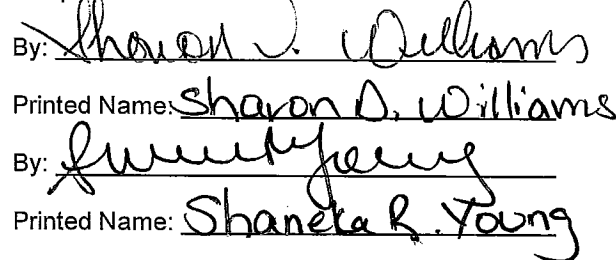 By: Sharon D. Williams
Printed Name: Sharon D. Williams
By: Young
Printed Name: Shaneka R. Young